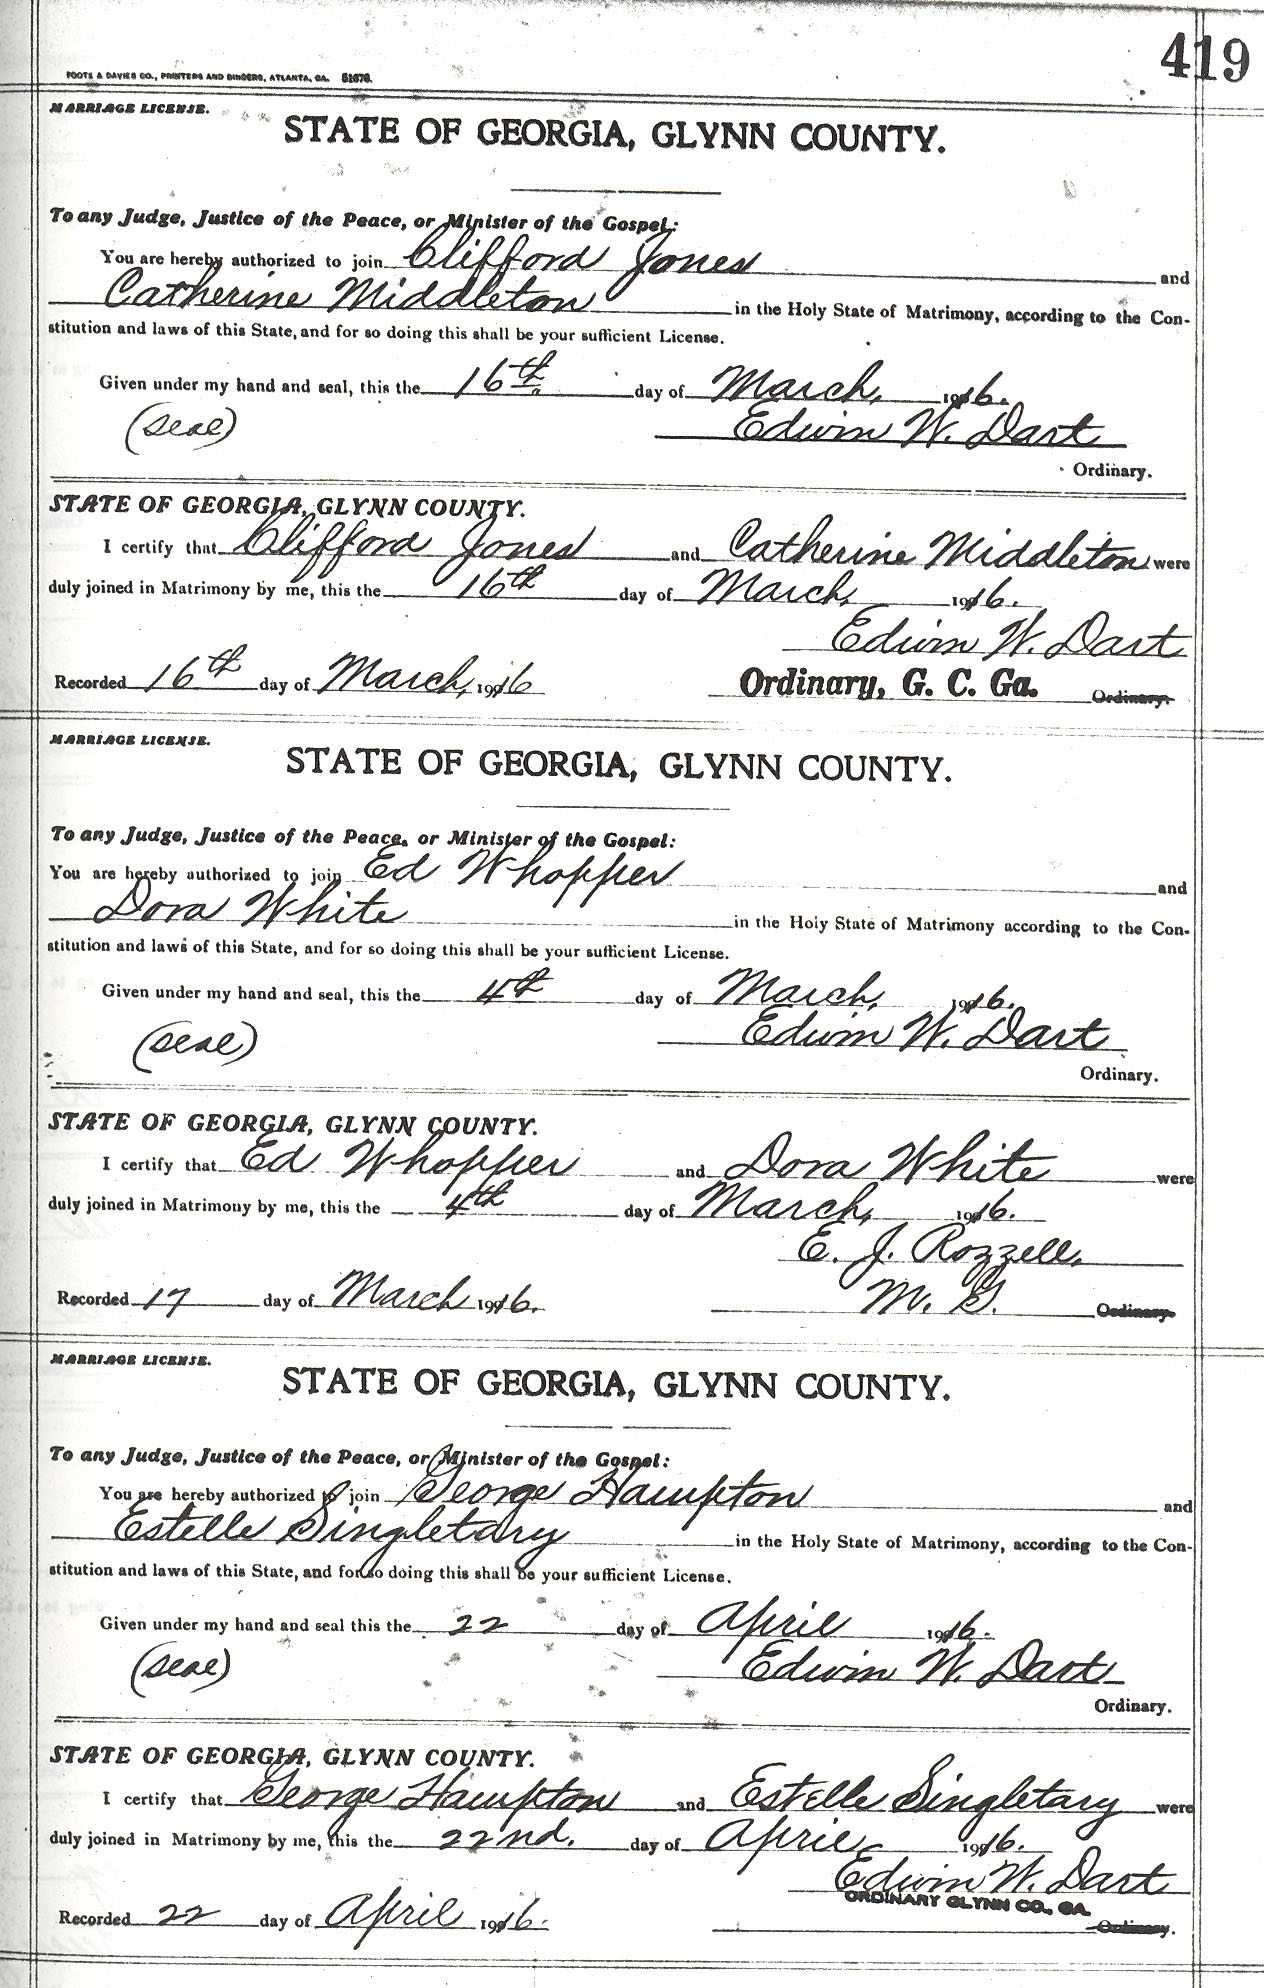 419
FOOTE & DAVIES CO., PRINTERS AND BINDERS, ATLANTA, GA. 51676.
MARRIAGE LICENSE.
STATE OF GEORGIA, GLYNN COUNTY.
To any Judge, Justice of the Peace, or Minister of the Gospel:
You are hereby authorized to join Clifford Jones and
Catherine Middleton in the Holy State of Matrimony, according to the Con-
stitution and laws of this State, and for so doing this shall be your sufficient License.
Given under my hand and seal, this the 16th. day of March, 1916.
(seal) Edwin W. Dart
Ordinary.
STATE OF GEORGIA, GLYNN COUNTY.
I certify that Clifford Jones and Catherine Middleton were
duly joined in Matrimony by me, this the 16th day of March, 1916.
Edwin W. Dart
Recorded 16th day of March, 1916 Ordinary, G. C. Ga. Ordinary.
MARRIAGE LICENSE.
STATE OF GEORGIA, GLYNN COUNTY.
To any Judge, Justice of the Peace, or Minister of the Gospel:
You are hereby authorized to join Ed Whopper and
Dora White in the Holy State of Matrimony according to the Con-
stitution and laws of this State, and for so doing this shall be your sufficient License.
Given under my hand and seal, this the 4th day of March, 1916.
(seal) Edwin W. Dart
Ordinary.
STATE OF GEORGIA, GLYNN COUNTY.
I certify that Ed Whopper and Dora White were
duly joined in Matrimony by me, this the 4th day of March, 1916.
E. J. Rozzell,
Recorded 17 day of March 1916. M. G. Ordinary.
MARRIAGE LICENSE.
STATE OF GEORGIA, GLYNN COUNTY.
To any Judge, Justice of the Peace, or Minister of the Gospel:
You are hereby authorized to join George Hampton and
Estelle Singletary in the Holy State of Matrimony, according to the Con-
stitution and laws of this State, and for so doing this shall be your sufficient License.
Given under my hand and seal this the 22 day of April 1916.
(seal) Edwin W. Dart
Ordinary.
STATE OF GEORGIA, GLYNN COUNTY.
I certify that George Hampton and Estelle Singletary were
duly joined in Matrimony by me, this the 22nd. day of April, 1916.
Edwin W. Dart
ORDINARY GLYNN CO., GA.
Recorded 22 day of April 1916. Ordinary.